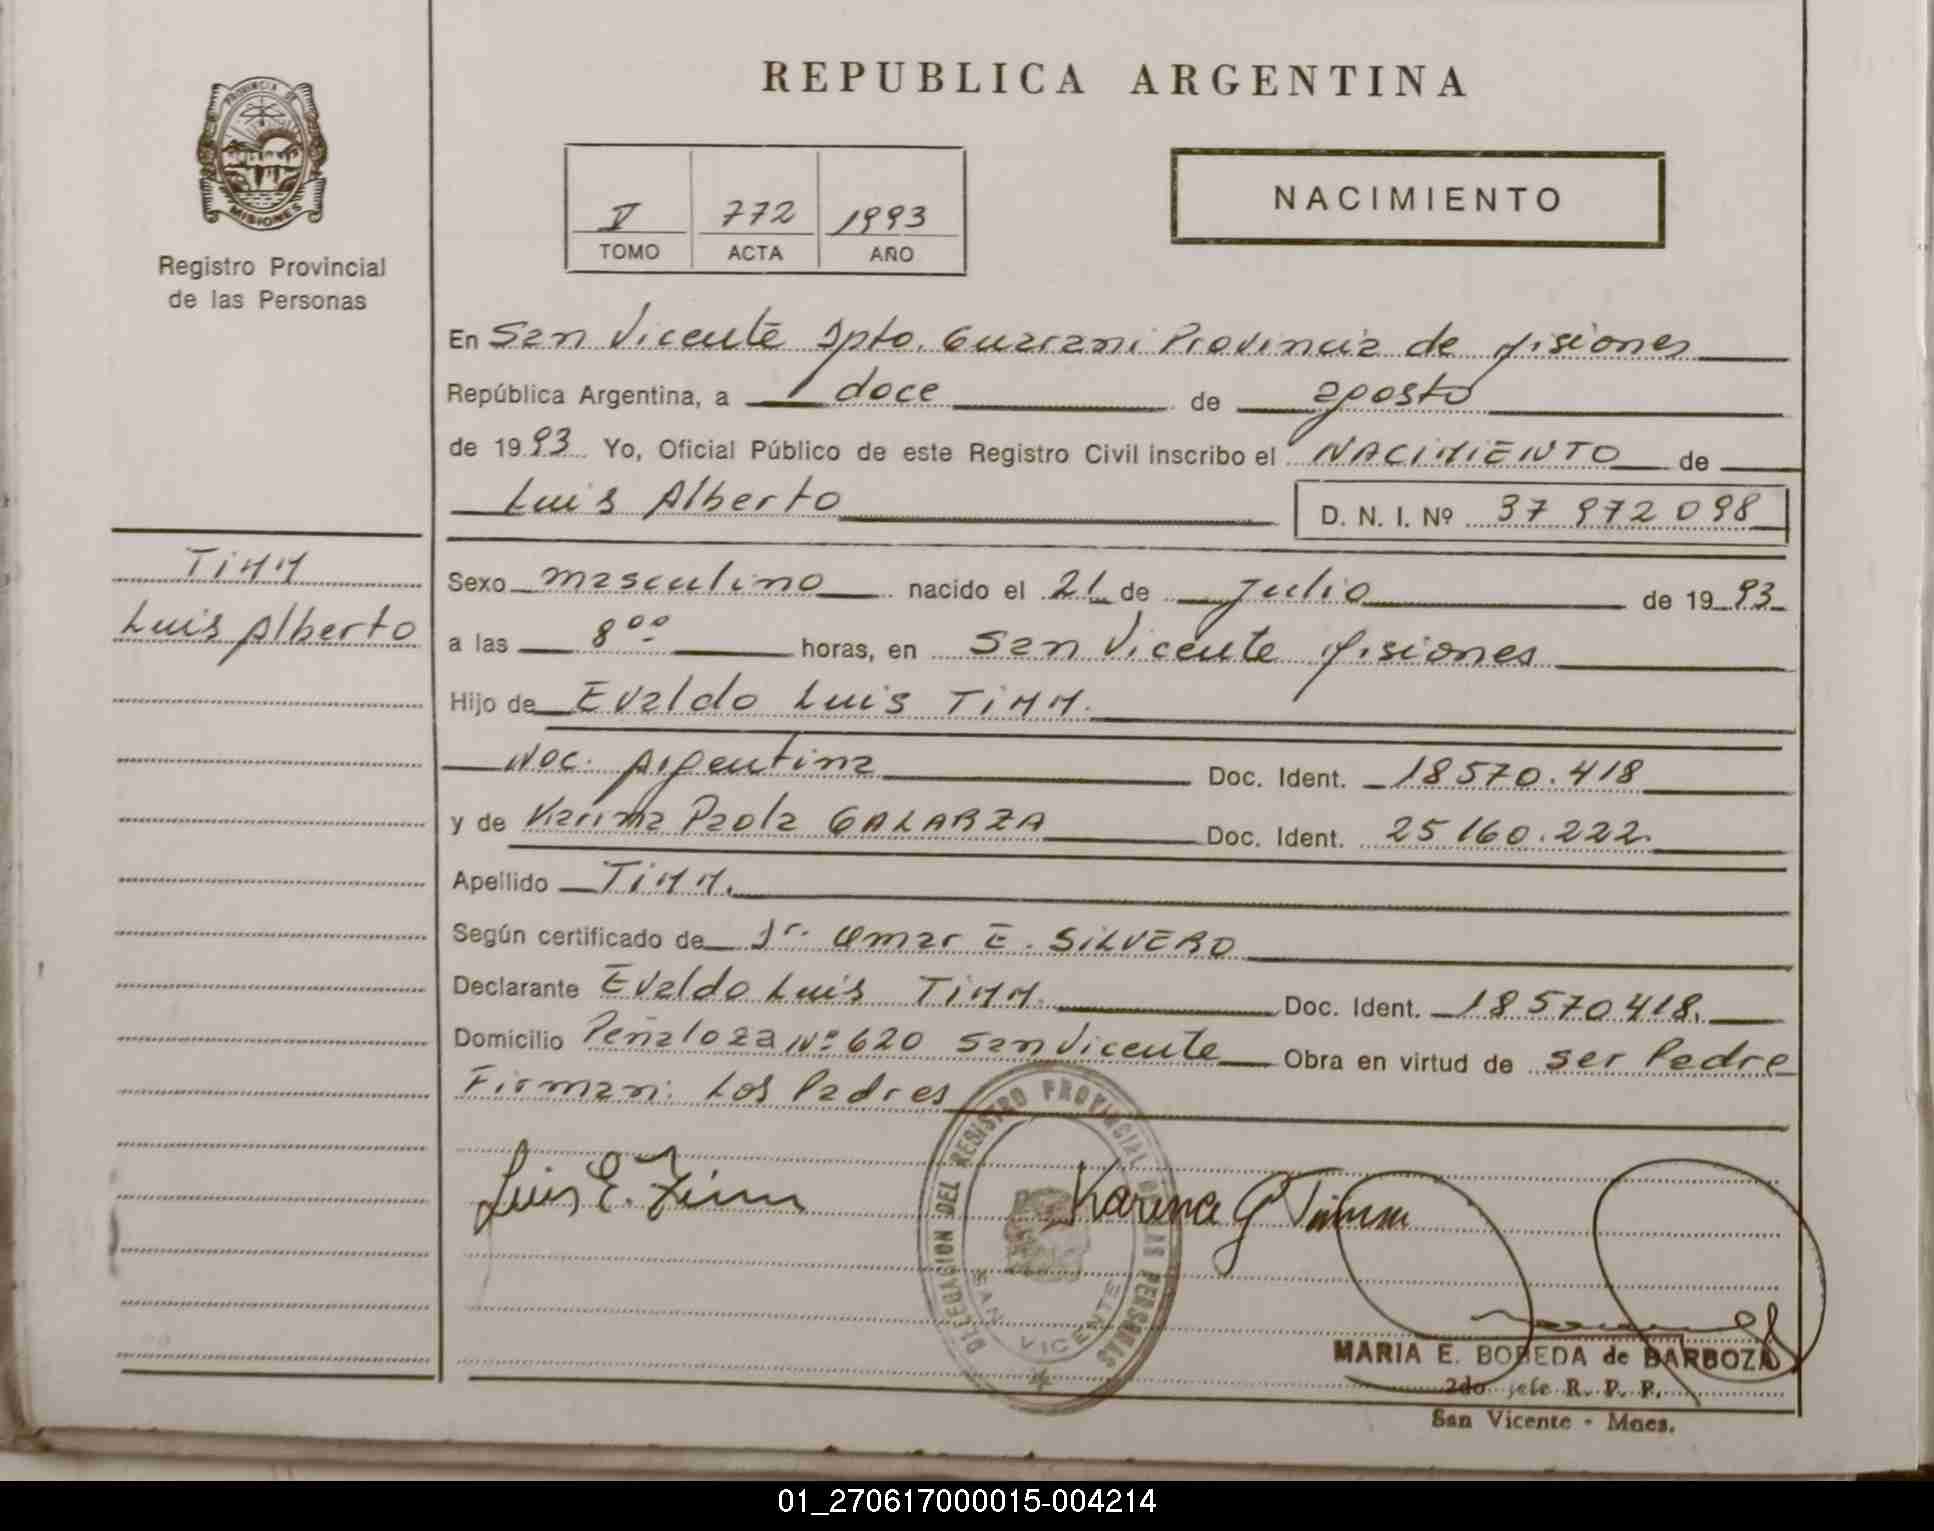 REPUBLICA ARGENTINA
PROVINCIA DE
MISIONES
Registro Provincial
de las Personas
V 772 1993
TOMO ACTA AÑO
NACIMIENTO
En San Vicente Dpto. Guarani Provincia de Misiones
República Argentina, a doce de agosto
de 1993 Yo, Oficial Público de este Registro Civil inscribo el NACIMIENTO de
Luis Alberto D. N. I. Nº 37 972 098
TIMM
Luis Alberto
Sexo masculino nacido el 21 de Julio de 1993
a las 8 00 horas, en San Vicente Misiones
Hijo de Evaldo Luis TIMM.
Nac. Argentina Doc. Ident. 18570.418
y de Karina Paola GALARZA Doc. Ident. 25160.222.
Apellido TIMM.
Según certificado de Dr. Omar E. SILVERO
Declarante Evaldo Luis TIMM. Doc. Ident. 18570418.
Domicilio Peñaloza Nº 620 San Vicente Obra en virtud de ser Padre
Firman: Los Padres
Luis E. Timm
Karina G Timm
DELEGACION DEL REGISTRO PROVINCIAL DE LAS PERSONAS
SAN VICENTE
MARIA E. BOBEDA de BARBOZA
2do jefe R. P. P.
San Vicente - Mnes.
01_270617000015-004214